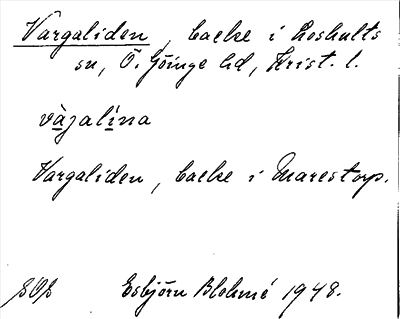 Vargaliden, backe i Loshults
sn, Ö. Göinge hd, Krist. l.
vàgalína
Vargaliden, backe i Marestorp.
Esbjörn Blohmé 1948.